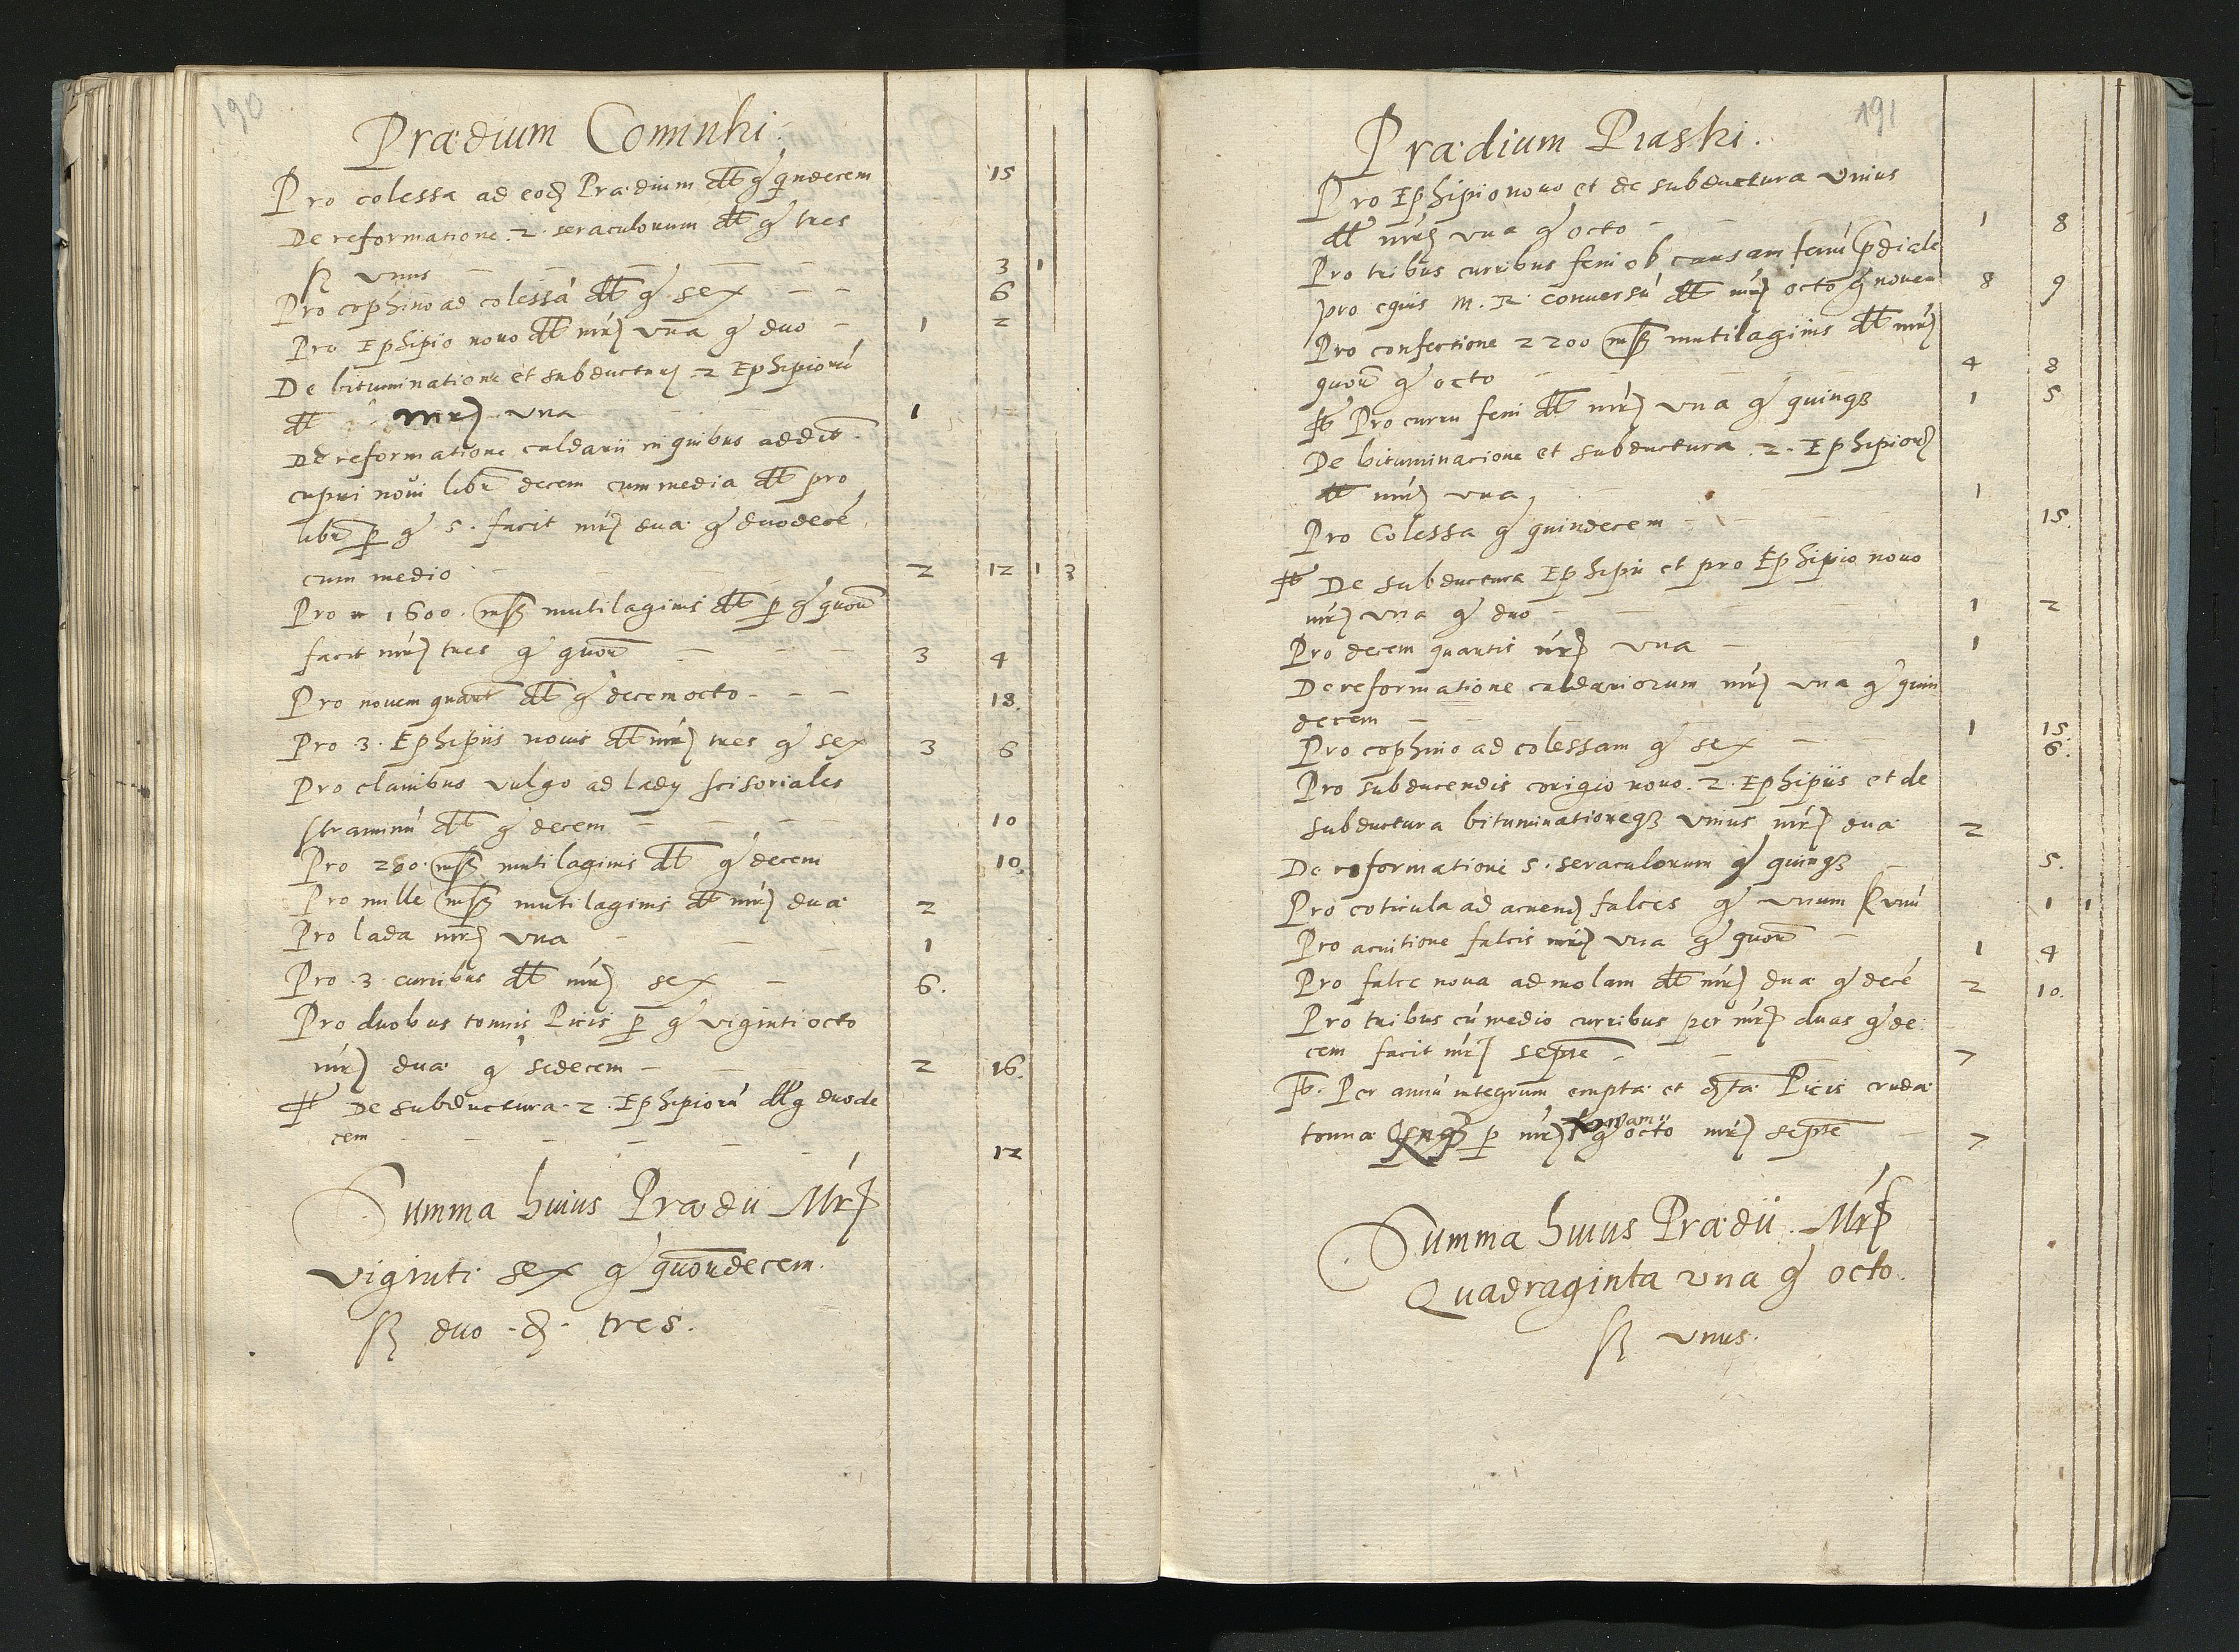 190
Prædium Cominki
Pro colessa ad eod Prædium dt g qndecem 15
De reformatione .2. seraculorum dt g tres
ß unus 3 1
Pro cophino ad colessá dt g sex 6
Pro Ephipio nouo dt mr vna g duo 1 2
De bituminatione et subductur 2 Ephipiorú
dt mr vna 1
De reformatione caldarii in quibus addit
cupri noui libr decem cum media dt pro
libr p g 5. facit mr duæ g duodecé
cum medio 2 12 1 3
Pro 1600. mutilaginis dt p g quour
facit mr tres g quour 3 4
Pro nouem quart dt g decem octo 18.
Pro .3. Ephipiis nouis dt mr tres g sex 3 6
Pro clauibus vulgo ad lady scisoriales
straminú dt g decem 10
Pro 280. mutilaginis dt g decem 10.
Pro mille mutilaginis dt mr duæ 2
Pro lada mr vna 1
Pro .3. curribus dt mr sex 6.
Pro duobus tonnis Picis p g viginti octo
mr duæ g sedecem 2 16.
De subductura .2. Ephipiorú dt g duode
cem 12
Summa huius Prædii Mr
viginti sex g quourdecem.
ß duo . d . tres.
191
Prædium Piaski.
Pro Ephipio nouo et de subductura vnius
dt mr vna g octo 1 8
Pro tribus curribus feni ob causam fenú pdiale
pro equis M. R. conuersú dt mr octo g nouem 8 9
Pro confectione 2200 mutilaginis dt mr
quour g octo 4 8
Pro curru feni dt mr vna g quinqȝ 1 5
De bituminacione et subductura .2. Ephipior
dt mr vna, 1
Pro Colessa g quindecem 15.
De subductura Ephipii et pro Ephipio nouo
mr vna g duo 1 2
Pro decem quartis mr vna 1
De reformatione caldariorum mr vna g quin
decem 1 15.
Pro cophino ad colessam g sex 6.
Pro subducendis corigio nouo .2. Ephipiis et de
subductura bituminationeqȝ vnius mr duæ 2
De reformationi 5. seraculorum g quinqȝ 5.
Pro coticula ad acuend falces g vnum ß vnú 1 1
Pro acuitione falcis mr vna g quour 1 4
Pro falce noua ad molam dt mr duæ g decé 2 10.
Pro tribus cú medio curribus per mr duas g de
cem facit mr septe 7
Per annú integrum empta et Picis cruda
tonnæ qnqȝ p mr 1 g octo mr septe 7
Summa huius Prædii Mr
Quadraginta vna g octo.
ß vnus.